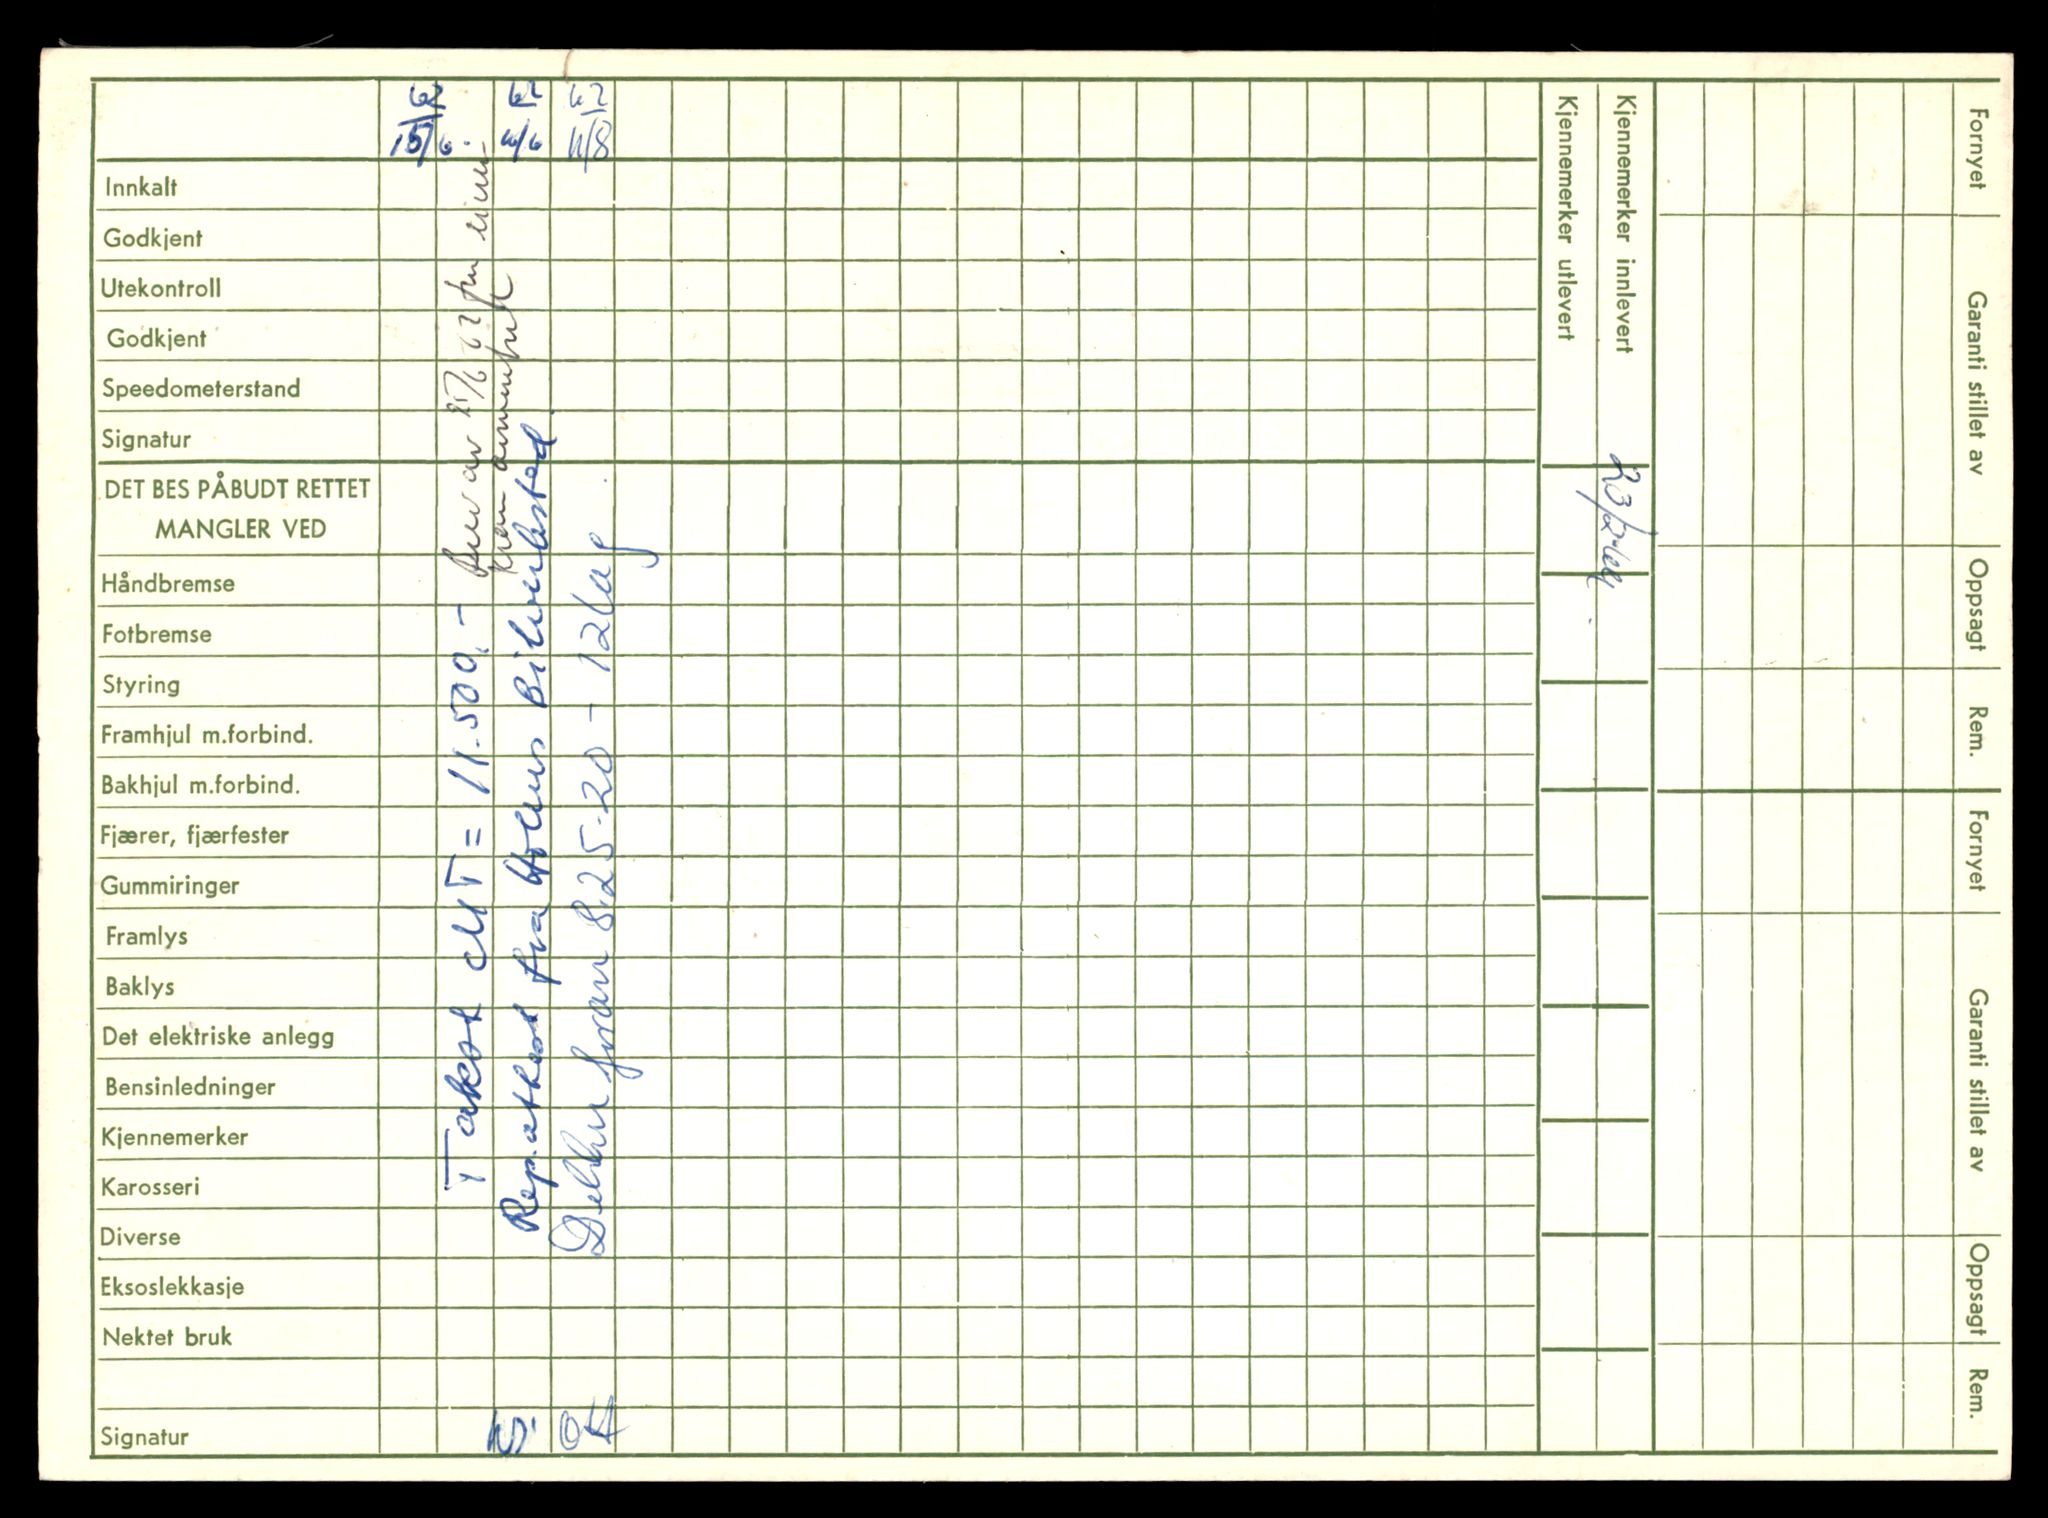 62 62 62
15/6. 4/6 11/8
Innkalt
Godkjent
Utekontroll
Godkjent
Speedometerstand
Signatur
DET BES PÅBUDT RETTET
MANGLER VED
Håndbremse
Fotbremse
Styring
Framhjul m.forbind.
Bakhjul m.forbind.
Fjærer, fjærfester
Gummiringer
Framlys
Baklys
Det elektriske anlegg
Bensinledninger
Kjennemerker
Karosseri
Diverse
Eksoslekkasje
Nektet bruk
Signatur
Takst MT = 11.500.-
av 62
Rep.attest fra Bilverksted
foran 8.25-20 - 12 lag
Kjennemerker utlevert
Kjennemerker innlevert
23/2-
Fornyet
Garanti stillet av
Oppsagt
Rem.
Fornyet
Garanti stillet av
Oppsagt
Rem.